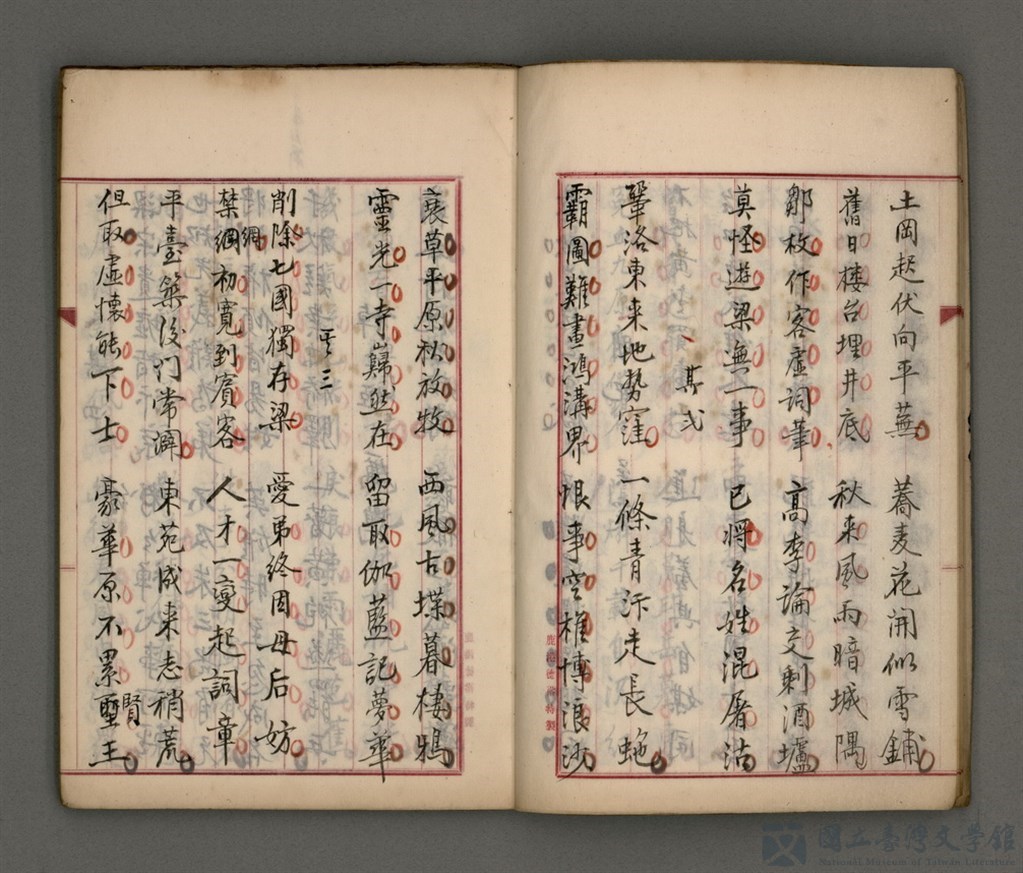 土岡起伏向平蕪　蕎麦花開似雪鋪
舊日楼台埋井底　秋来風雨暗城隅
鄒枚作客虛詞筆　高李論交剩酒壚
莫怪遊梁無一事　已將名姓混屠沽
其弍
鞏洛東来地勢窪　一條青汴走長蛇
霸圖難畫鴻溝界　恨事空椎博浪沙
衰草平原秋放牧　西風古堞暮棲鴉
靈光一寺巋然在　留取伽藍記夢華
其三
削除七國獨存梁　愛弟終因母后妨
禁綱網初寬到賓客　人才一變起詞章
平臺築後门常溷　東苑成来志稍荒
但取虛懷能下士　豪華原不累聖賢王
國立臺灣文學館
National Museum of Taiwan Literature